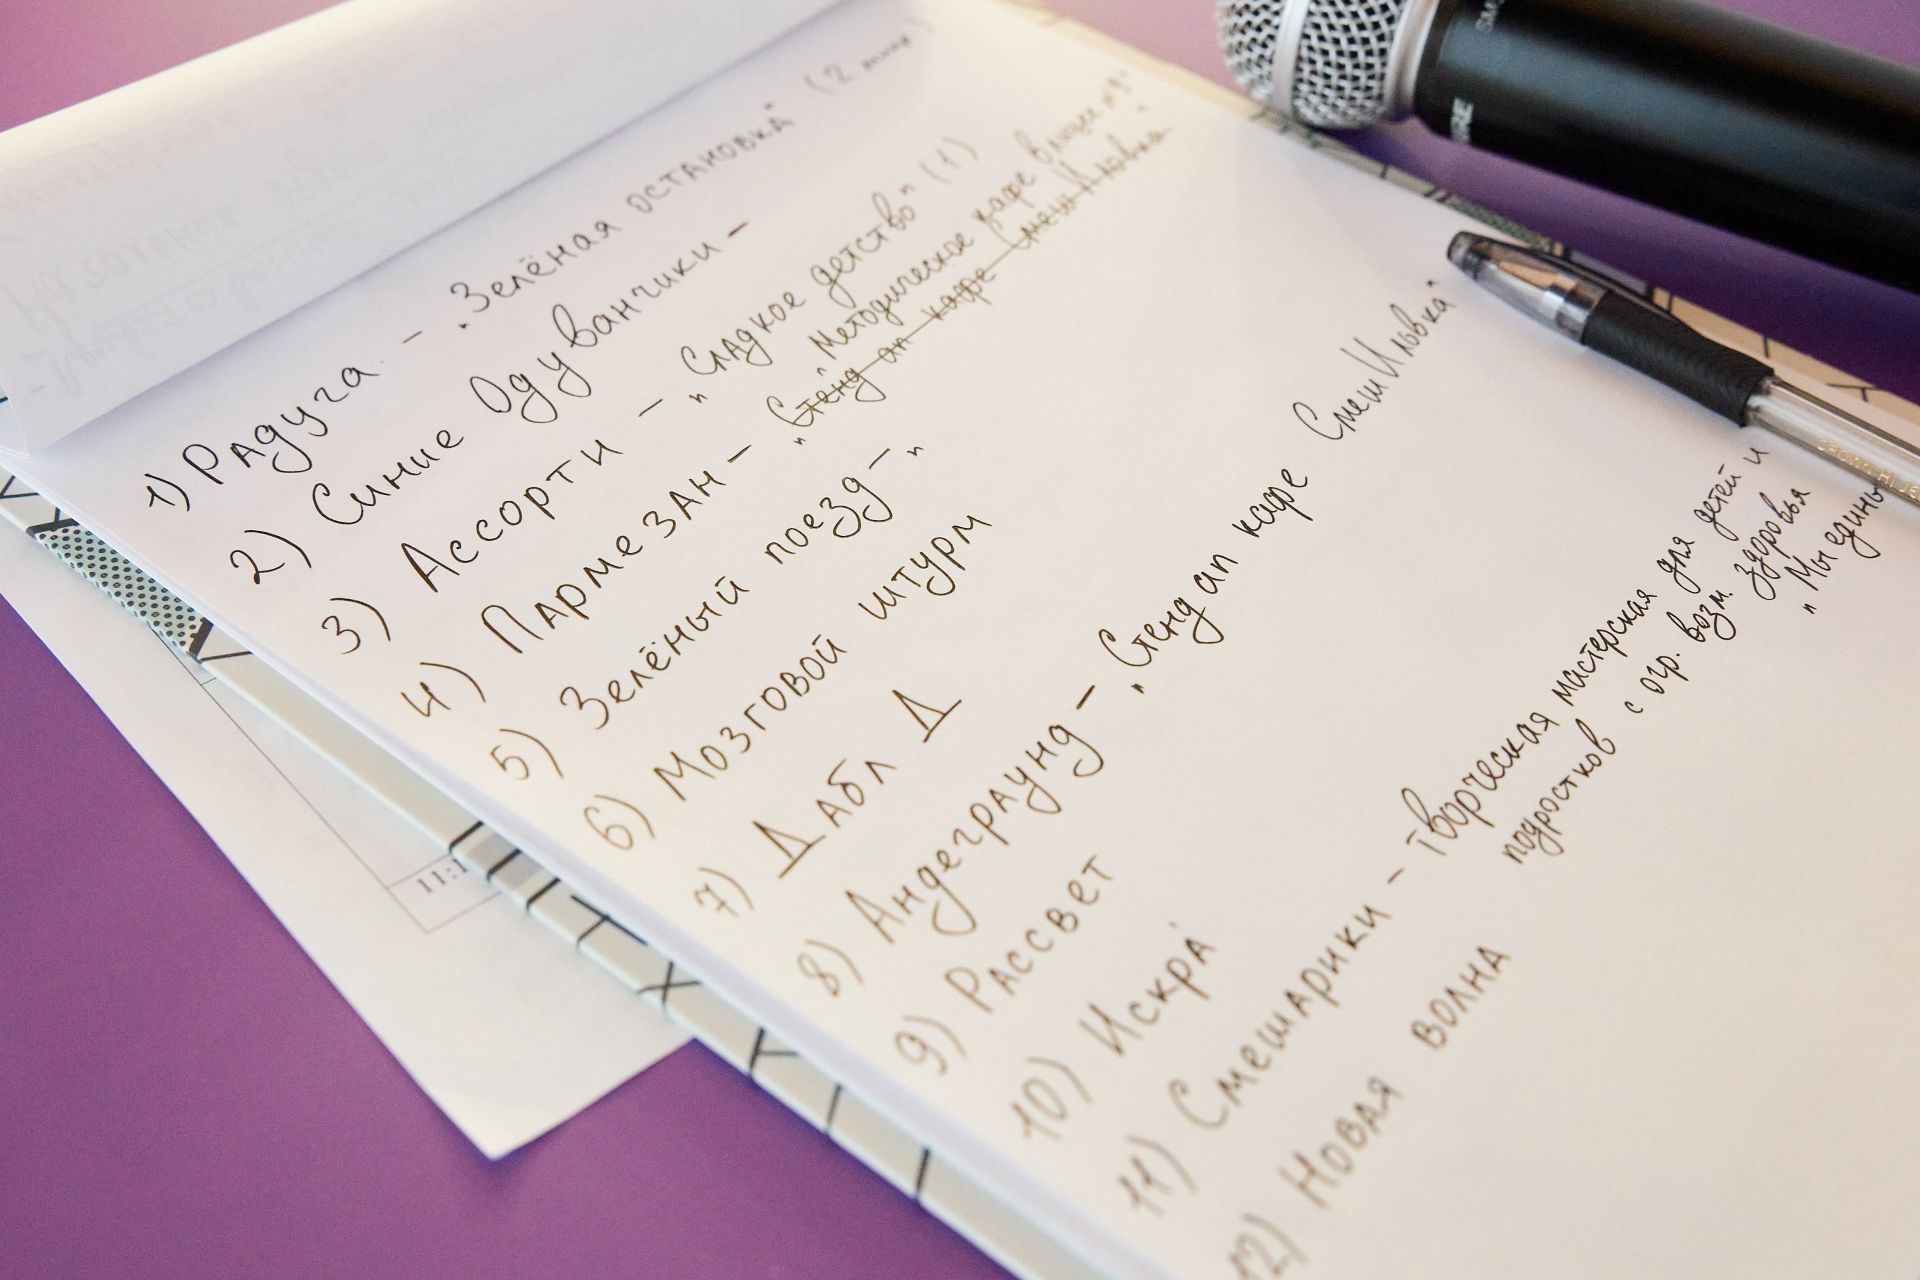 1) Радуга - "Зелёная остановка" (2
2) Синие Одуванчики -
3) Ассорти - "Сладкое детство" (1)
"Методическое кафе
4) Пармезан - "Стенд ап кафе СмешИльвка"
5) Зелёный поезд - "
6) Мозговой штурм
7) Дабл Д
8) Андеграунд - "Стенд ап кафе СмешИльвка"
9) Рассвет
10) Искра
11) Смешарики - творческая мастерская для детей и
подростков с огр. возм. здоровья
"Мы едины
12) Новая волна
11:1